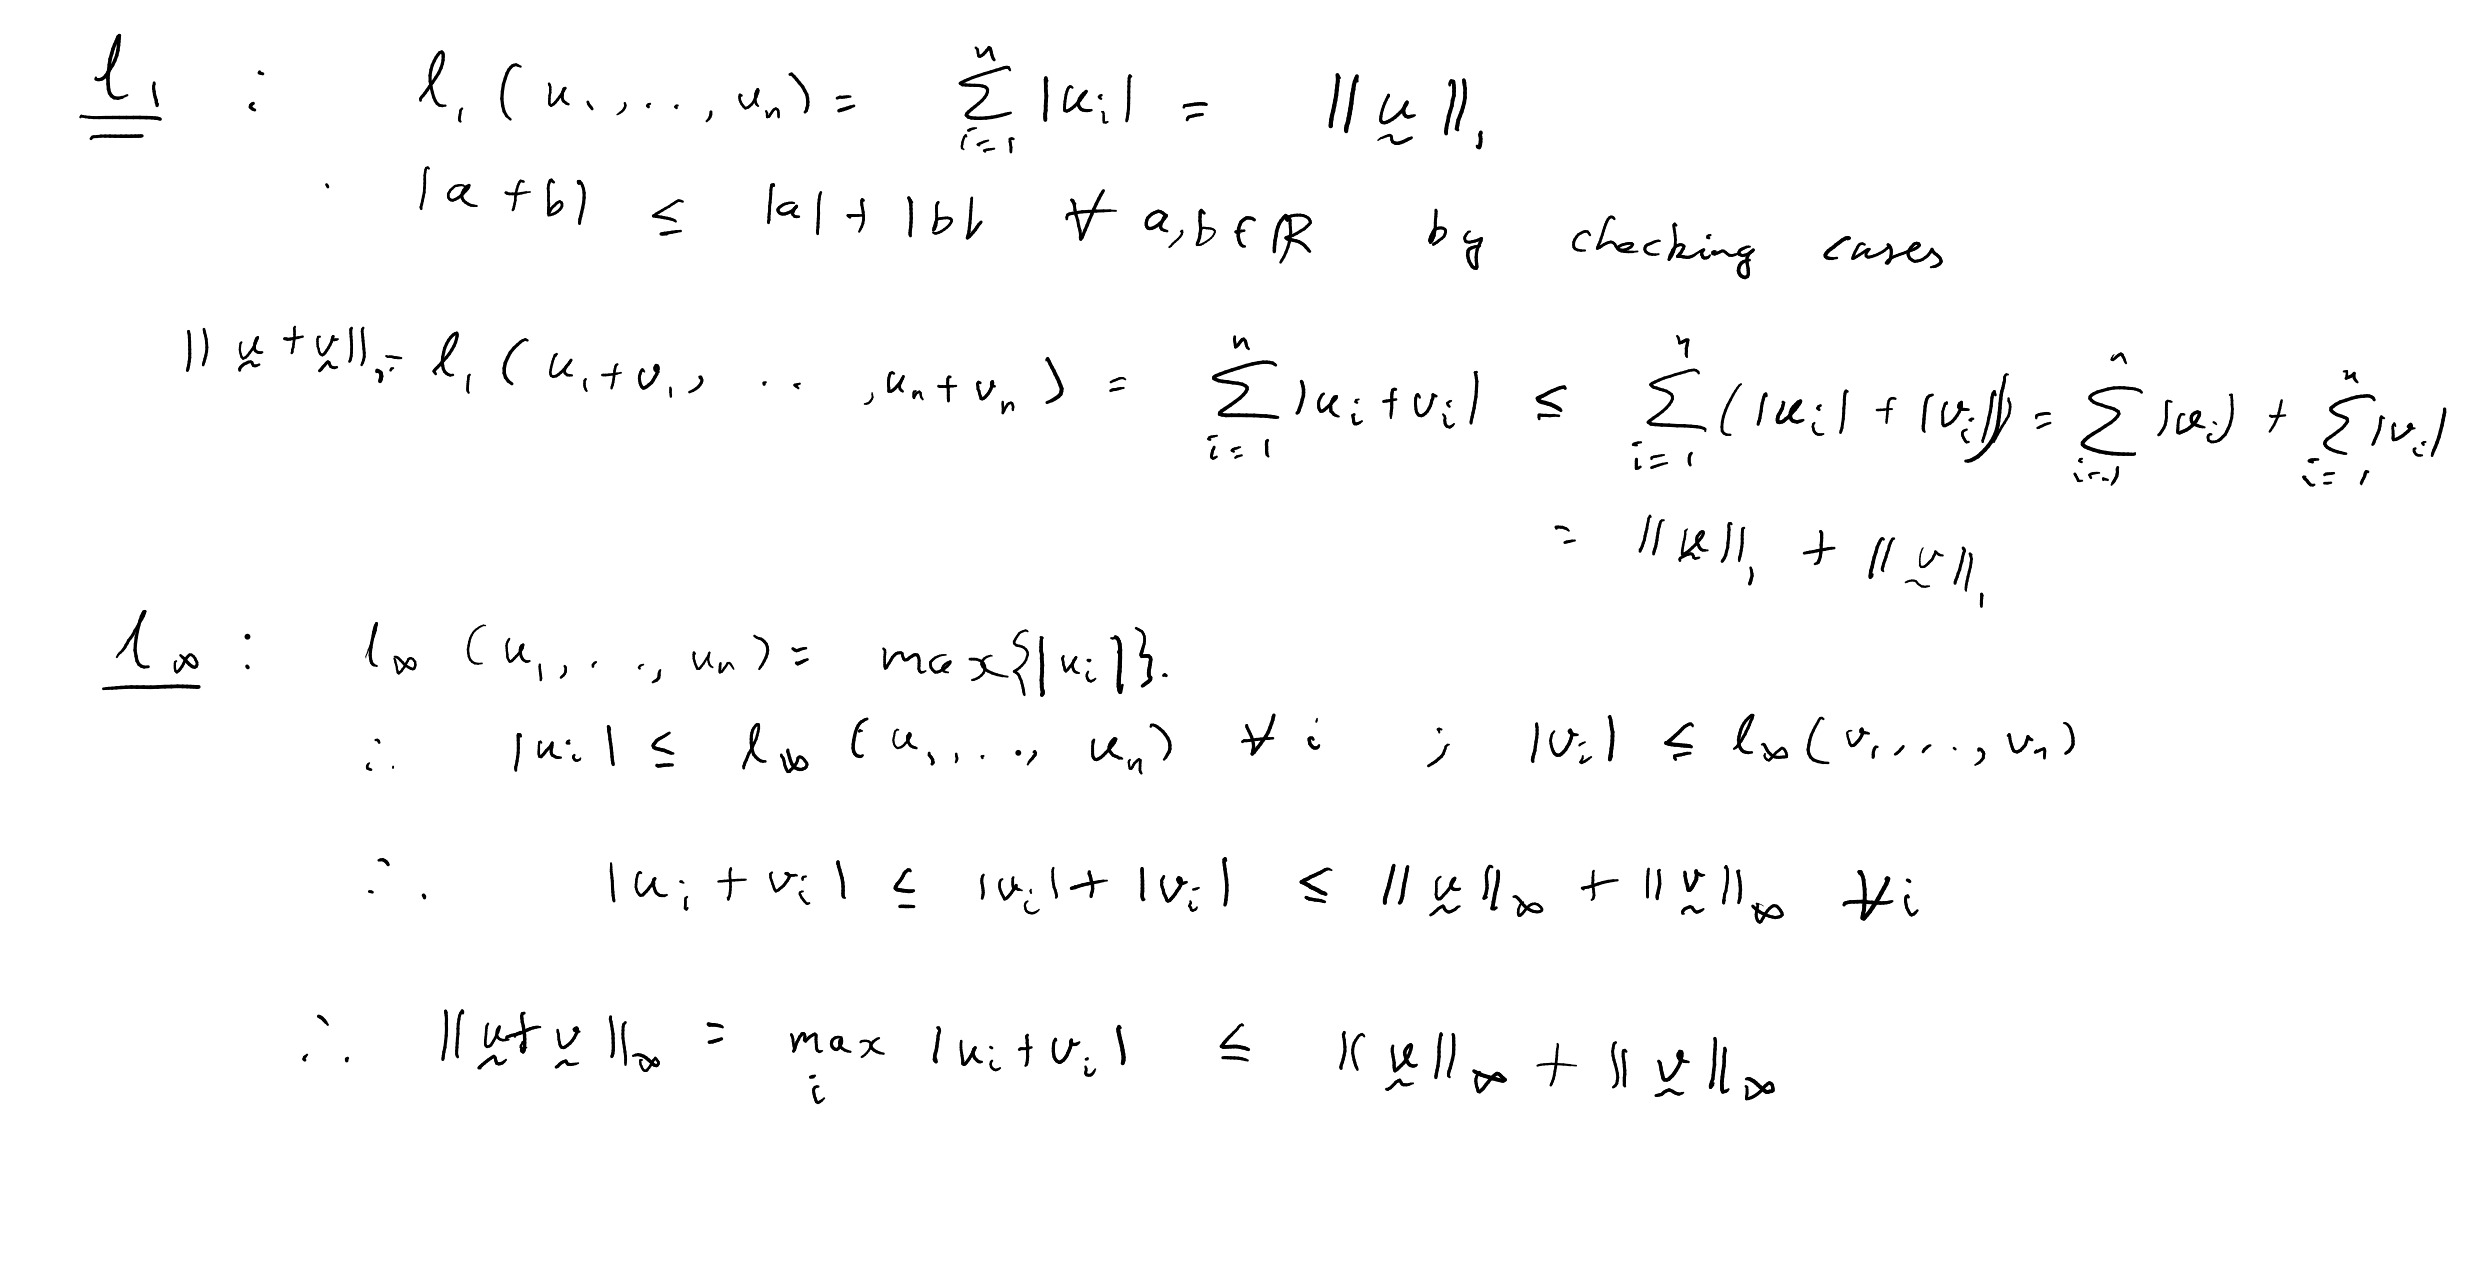 l₁ : l₁(u₁,..,uₙ) = ∑ᵢ₌₁ⁿ |uᵢ| = ‖ṵ‖₁
. |a+b| ≤ |a| + |b| ∀ a,b ∈ ℝ by checking cases
‖ṵ+v̰‖₁ = l₁(u₁+v₁, .. ,uₙ+vₙ) = ∑ᵢ₌₁ⁿ |uᵢ+vᵢ| ≤ ∑ᵢ₌₁ⁿ (|uᵢ| + |vᵢ|) = ∑ᵢ₌₁ⁿ |uᵢ| + ∑ᵢ₌₁ⁿ |vᵢ|
= ‖ṵ‖₁ + ‖v̰‖₁
l∞ : l∞(u₁,..,uₙ) = max{|uᵢ|}.
∴ |uᵢ| ≤ l∞(u₁,..,uₙ) ∀ i ; |vᵢ| ≤ l∞(v₁,...,vₙ)
∴ |uᵢ + vᵢ| ≤ |uᵢ| + |vᵢ| ≤ ‖ṵ‖∞ + ‖v̰‖∞ ∀i
∴ ‖ṵ+v̰‖∞ = maxᵢ |uᵢ+vᵢ| ≤ ‖ṵ‖∞ + ‖v̰‖∞